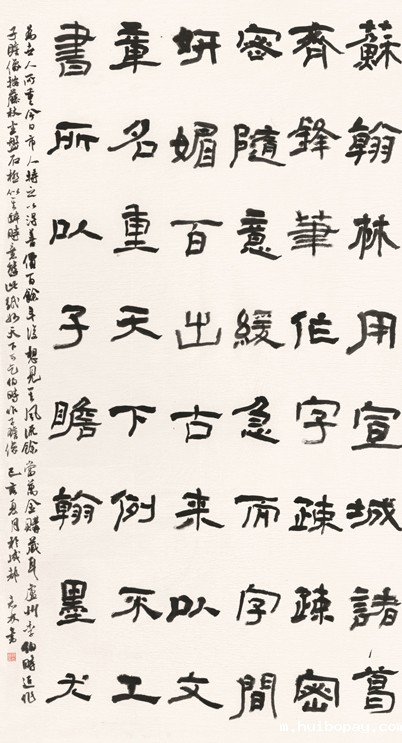 蘇翰林用宣城諸葛
齊鋒筆作字疎疎密
密隨意緩急而字間
妍媚百出古来以文
章名重天下例不工
書所以子瞻翰墨尤
為世人所重今日市人持之以得善價百餘年後想見其風流餘當萬金購藏耳廬州李伯時近作
子瞻像按藤杖坐盤石極似其醉時意態此紙妙天下可乞伯時作子瞻像 己亥夏月於成都 書
m.huibopay.com